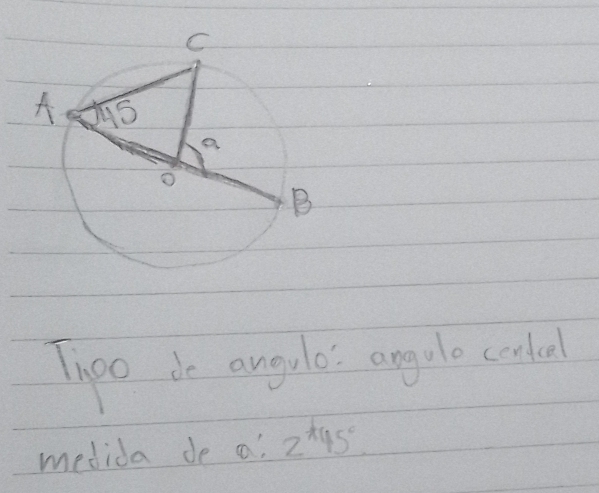 C
A 45
a
O
B
Tipo de angulo: angulo central
medida de a: 2*45°